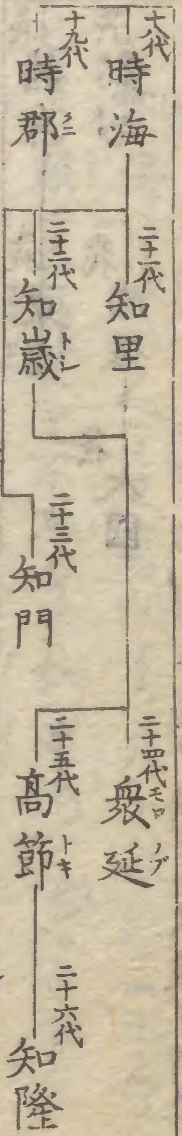 十八代 時海
十九代 時郡 クニ
二十一代 知里
二十二代 知歳 トシ
二十三代 知門
二十四代 衆延 モロノブ
二十五代 高節 トキ
二十六代 知隆